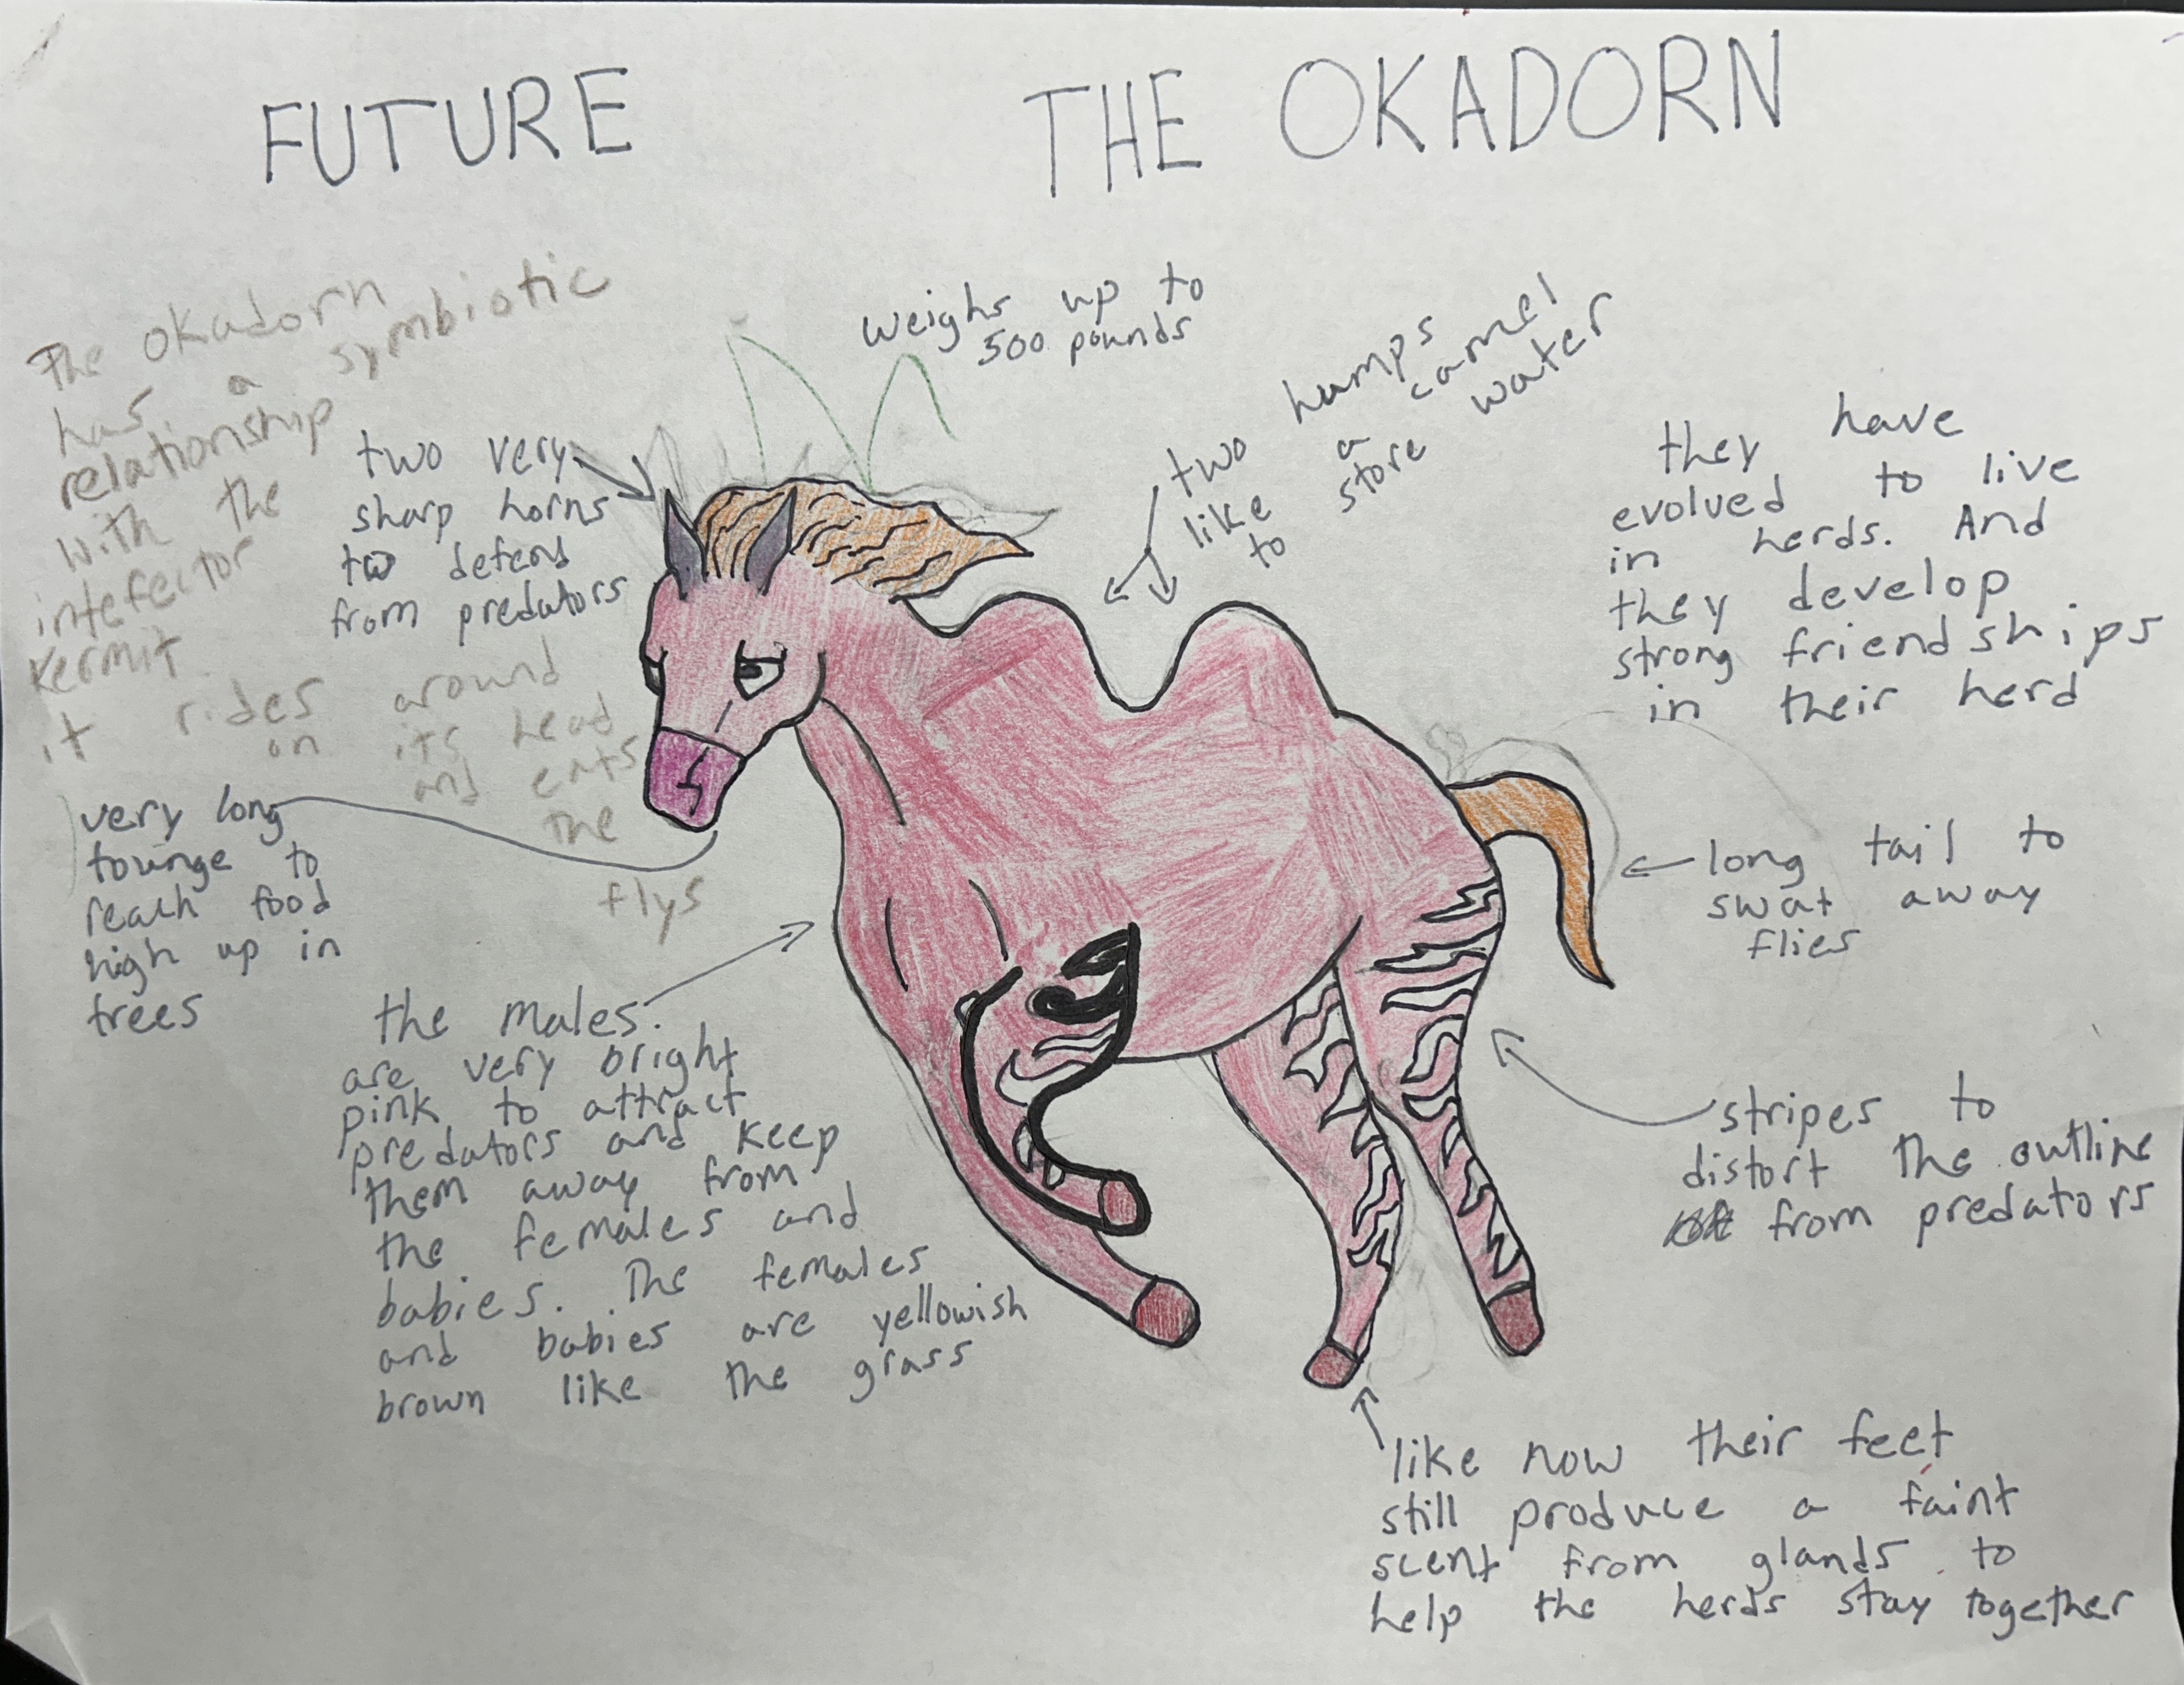 FUTURE
THE OKADORN
The okadorn
has a symbiotic
relationship
with the
intefector
Kermit
it rides around
on its head
and eats
the
flys
weighs up to
500 pounds
two very
sharp horns
two defend
from predators
two humps
like a camel
to store water
they have
evolved to live
in herds. And
they develop
strong friendships
in their herd
very long
tounge to
reach food
high up in
trees
long tail to
swat away
flies
the males
are very bright
pink to attract
predators and keep
them away from
the females and
babies. The females
and babies are yellowish
brown like the grass
stripes to
distort the outline
from predators
like now their feet
still produce a faint
scent from glands to
help the herds stay together